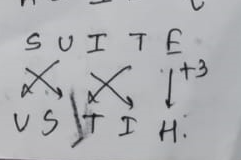 S U I T E
+3
U S T I H.